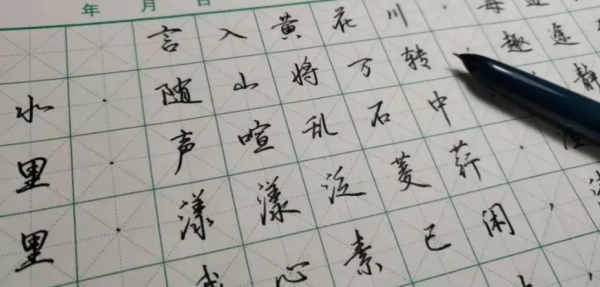 年 月 日
言入黄花川，每
水。随山将万转，趣途
里。声喧乱石中，静
里。漾漾泛菱荇，
心素已闲，